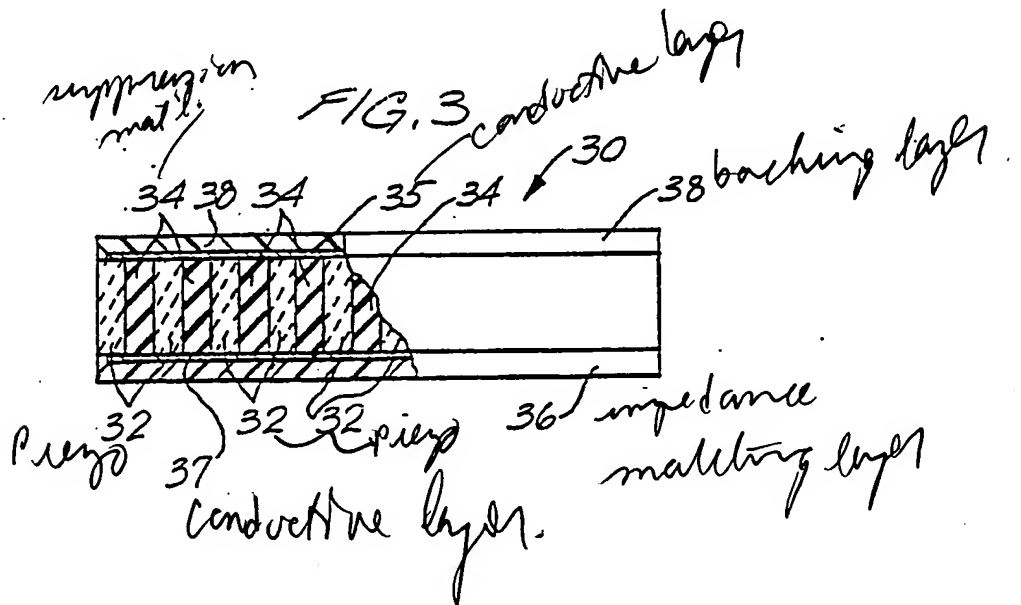 suppression
mat'l.
FIG. 3
conductive layer
30
34 38 34 35 34
38 backing layer
32 32 32
piezo piezo
37
36 impedance
matching layer
conductive layer.